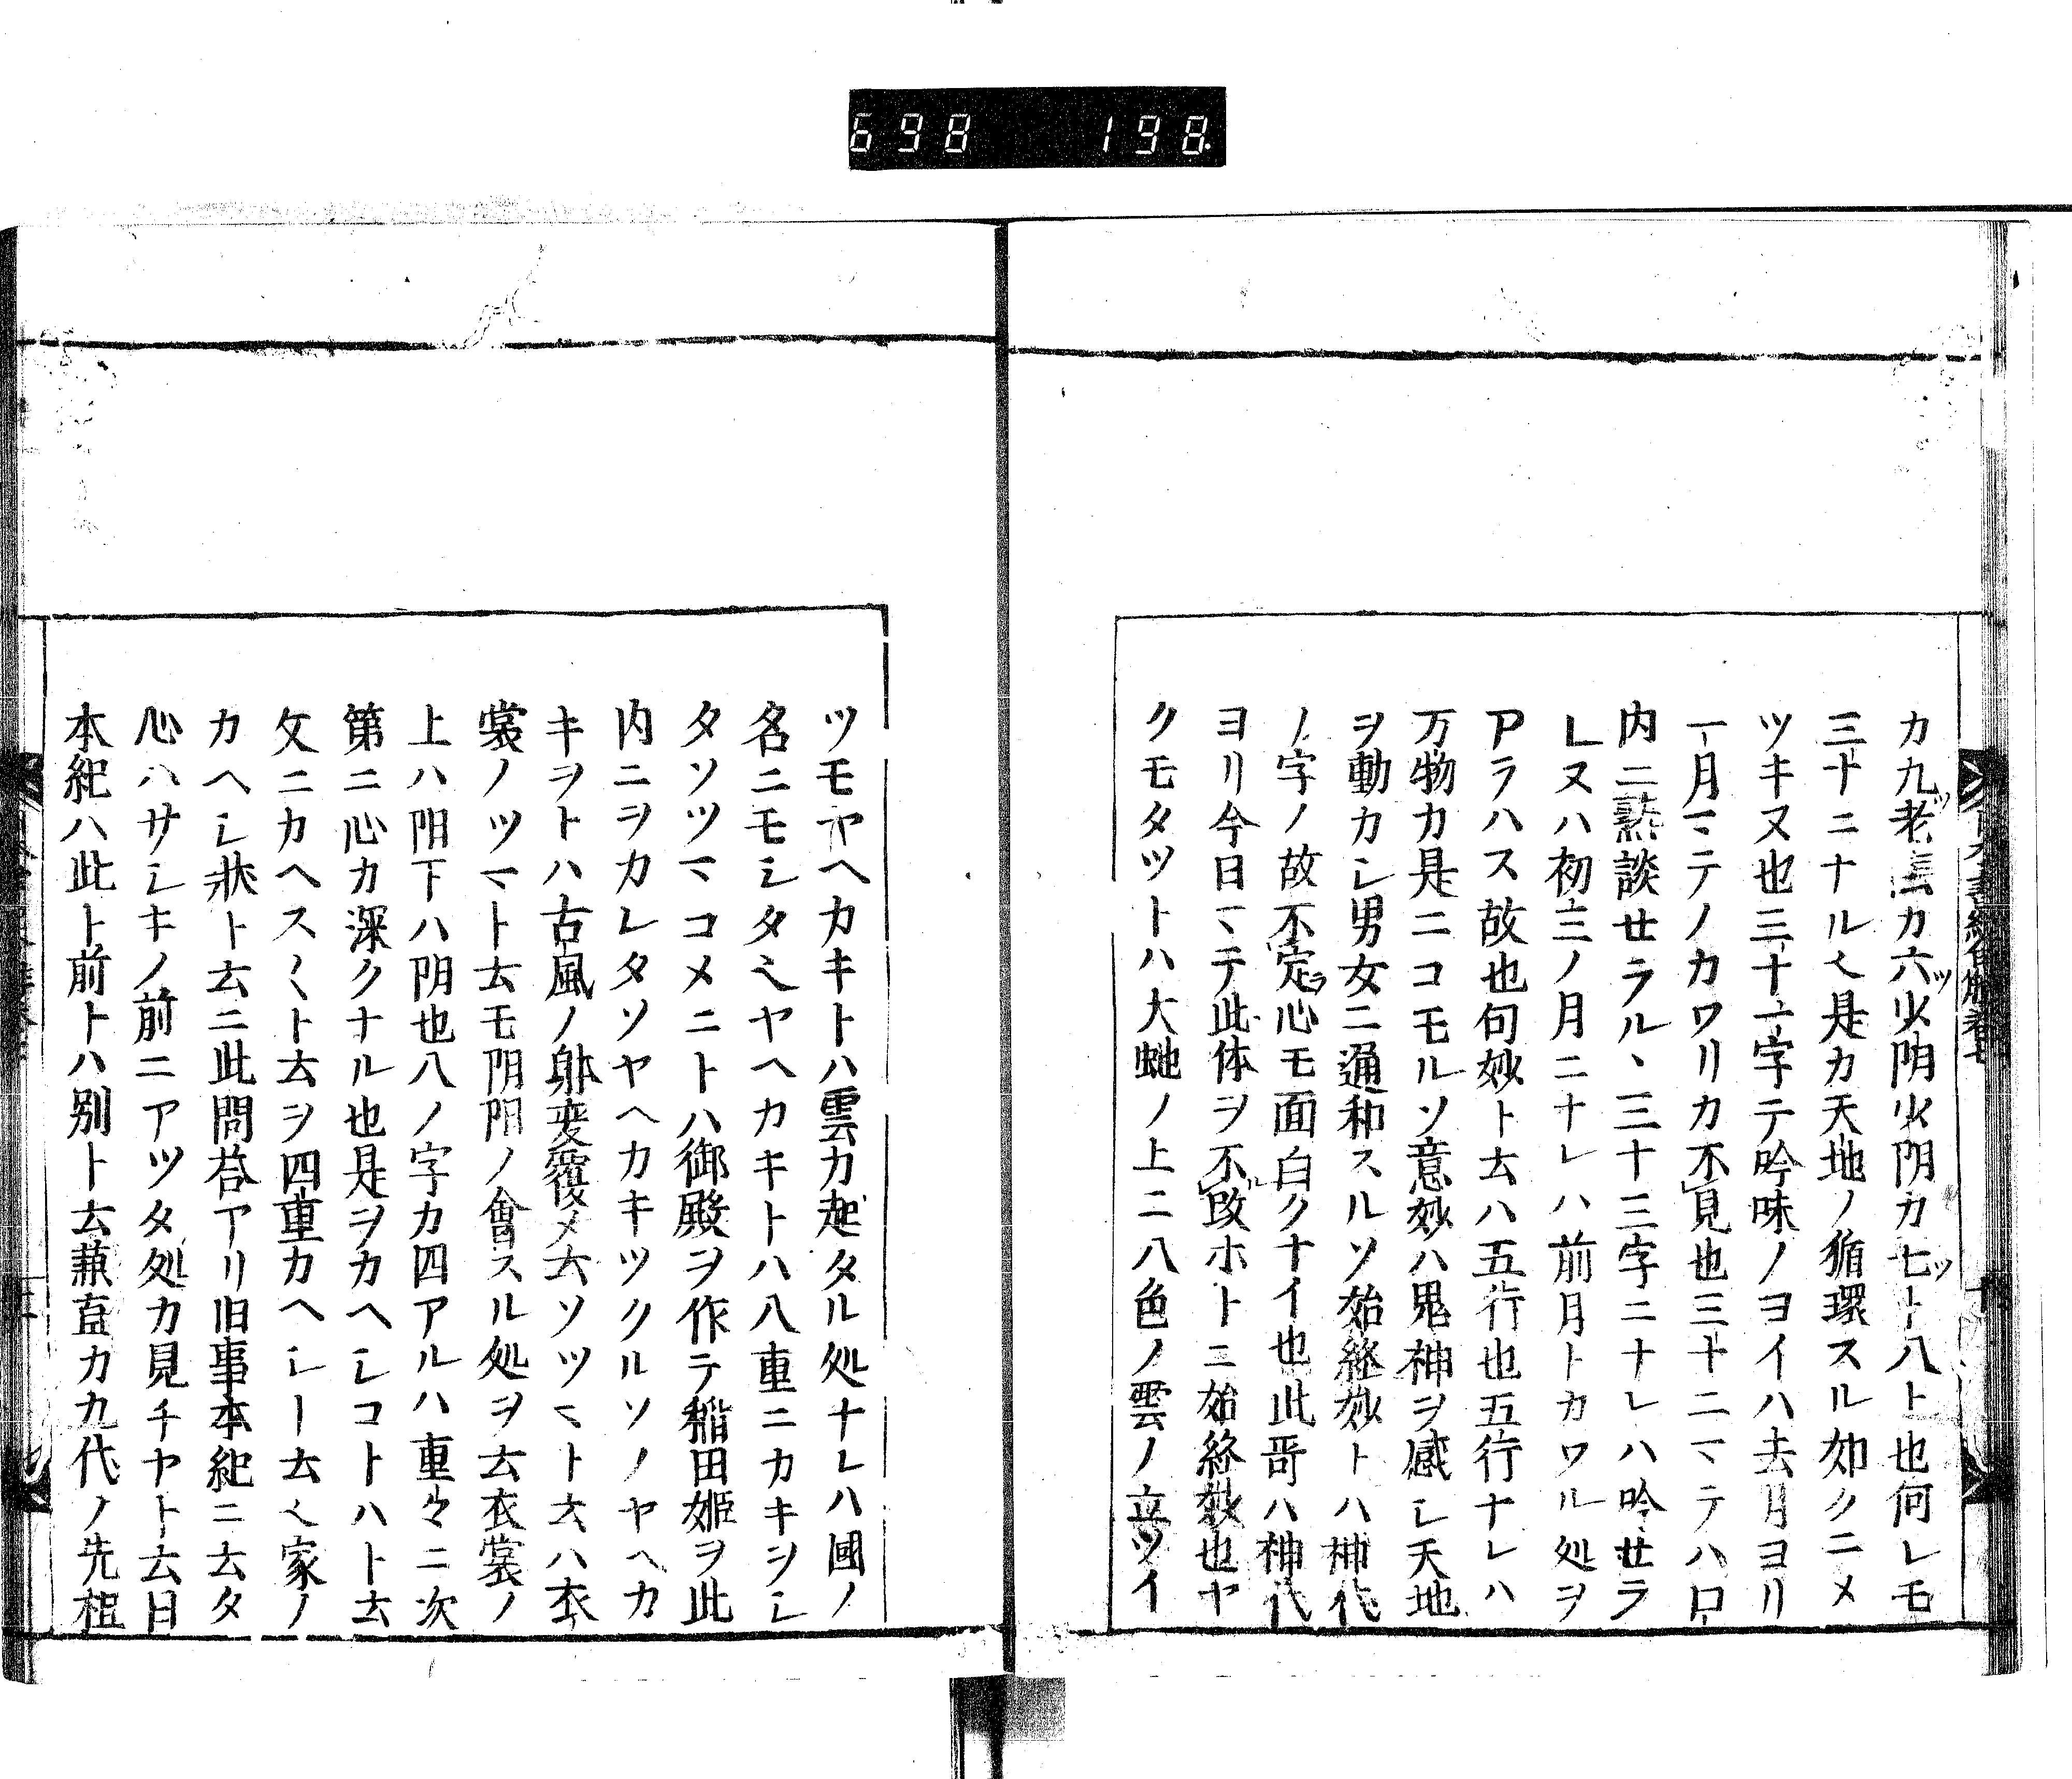 698 198.
カ九ツ老陰カ六ツ少陰少陽カ七ツト八ト也何レモ
三十ニナルヽ是カ天地ノ循環スル如クニメ
ツキヌ也三十一字テ吟味ノヨイハ去月ヨリ
一月マテノカワリカ不見也三十二マテハ口
内ニ熟談セラルヽ三十三字ニナレハ吟セラ
レヌハ初三ノ月ニナレハ前月トカワル処ヲ
アラハス故也句妙ト云ハ五行也五行ナレハ
万物カ是ニコモルソ意妙ハ鬼神ヲ感シ天地
ヲ動カシ男女ニ通和スルソ始終妙トハ神代
ノ字ノ故不定ラ心モ面白クナイ也此哥ハ神代
ヨリ今日マテ此体ヲ不改ホトニ始終妙也ヤ
クモタツトハ大虵ノ上ニ八色ノ雲ノ立ツイ
ツモヤヘカキトハ雲カ起タル処ナレハ國ノ
名ニモシタヽヤヘカキトハ八重ニカキヲシ
タソツマコメニトハ御殿ヲ作テ稲田姫ヲ此
内ニヲカレタソヤヘカキツクルソノヤヘカ
キヲトハ古風ノ躰変覆メ云ソツマト云ハ衣
裳ノツマト云モ陰陽ノ會スル処ヲ云衣裳ノ
上ハ陽下ハ陰也八ノ字カ四アルハ重々ニ次
第ニ心カ深クナル也是ヲカヘシコトハト云
文ニカヘスヽト云ヲ四重カヘシー云ヽ家ノ
カヘシ狀ト云ニ此問荅アリ旧事本紀ニ云タ
心ハサシキノ前ニアツタ処カ見チヤト云日
本紀ハ此ト前トハ別ト云兼直カ九代ノ先祖